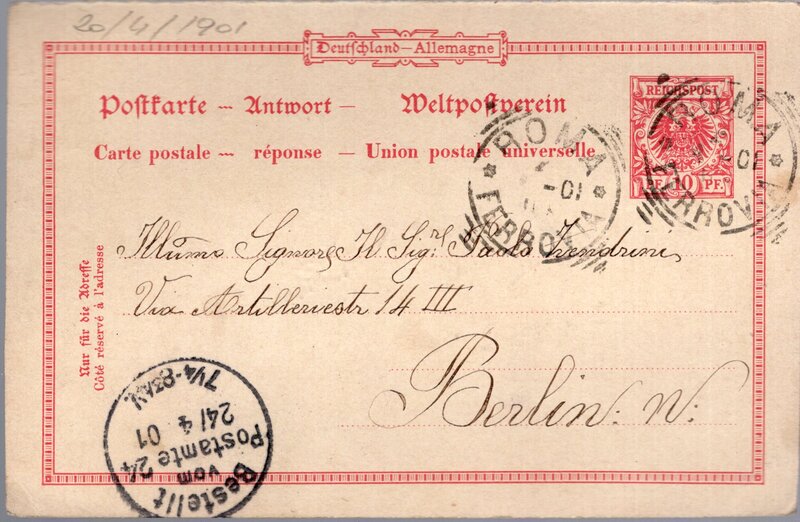 20/4/1901
Deutschland—Allemagne
Postkarte — Antwort — Weltpostverein
Carte postale — réponse — Union postale universelle
REICHSPOST
PF. 10 PF.
ROMA
01
FERROVIA
ROMA
01
FERROVIA
Illumo Signore Il Sigr Paolo Zendrini
Via Artilleriestr 14 III
Berlin: N.
Nur für die Adresse
Côté réservé à l'adresse
Bestellt
vom
Postamte 24
24/4 01
7¼-8¾V.